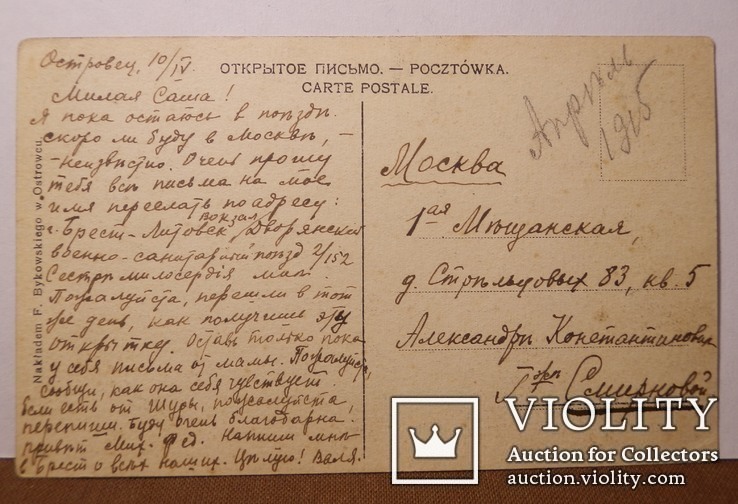 Островец, 10/IV.
Милая Саша!
Я пока остаюсь в поѣздѣ.
скоро ли буду в Москвѣ, –
-неизвѣстно. Очень прошу
тебя всѣ письма на мое
имя переслать по адресу:
г. Брест-Литовск вокзал Дворянский
военно-санитарный поѣзд 2/152
Сестрѣ милосердія
Пожалуйста, перешли в тот
же день, как получишь эту
открытку. Оставь только пока
у себя письма от мамы. Пожалуйста,
сообщи, как она себя чувствует.
Если есть от Шуры, пожалуйста,
перепиши. Буду очень благодарна.
привѣт Мих. Фед. Напиши мнѣ
в Брест о всѣх наших. Цѣлую! Валя.
Nakładem F. Bykowskiego w Ostrowcu.
ОТКРЫТОЕ ПИСЬМО. — POCZTÓWKA.
CARTE POSTALE.
Апрѣль
1915
Москва
1ая Мѣщанская,
д. Стрѣльцовых 83, кв. 5
Александрѣ Константиновнѣ
Смирновой
VIOLITY
Auction for Collectors
auction.violity.com